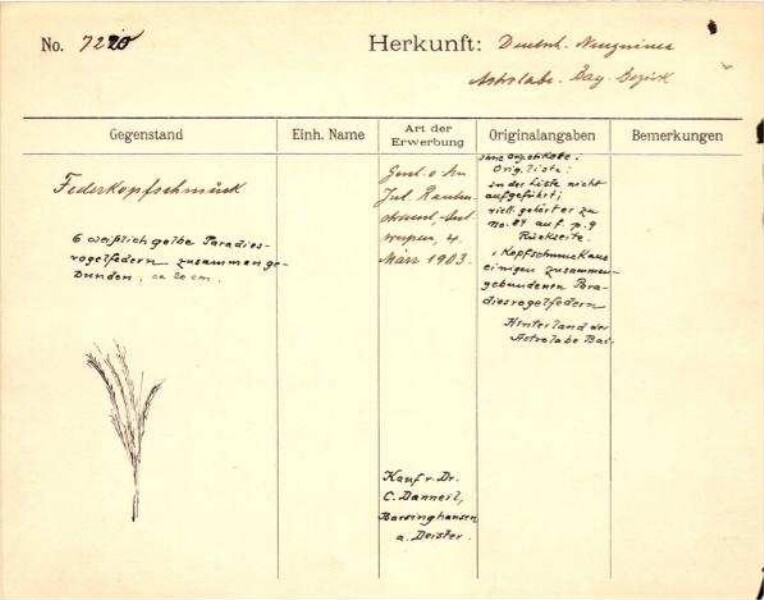 No. 7220
Herkunft: Deutsch. Neuguinea
Astrolabe. Bay. Bezirk
Gegenstand
Einh. Name
Art der
Erwerbung
Originalangaben
Bemerkungen
Federkopfschmuck
6 weißlich gelbe Paradies-
vogelfedern zusammenge-
bunden, ca 20 cm.
Jul.
4.
März 1903.
Kauf v. Dr.
C. Danneil,
Barsinghausen
a. Deister.
ohne
Orig. liste:
in der Liste nicht
aufgeführt;
viell. gehört er zu
No. 84 auf p. 9
Rückseite.
"Kopfschmuck aus
einigen zusammen-
gebundenen Para-
diesvogelfedern
Hinterland der
Astrolabe Bai.